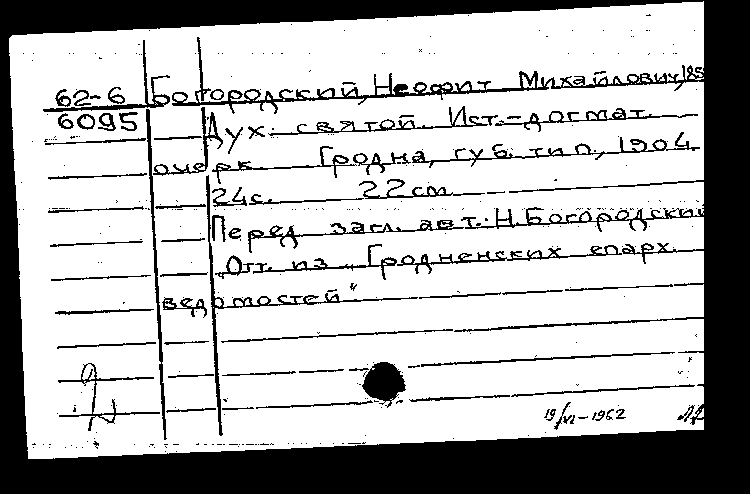 62-6 Богородский, Неофит Михайлович, 185
6095 Дух святой. Ист.-догмат.
очерк Гродна, губ. тип., 1904
24с. 22 см
Перед загл. авт.: Н. Богородский
„Отт. из „Гродненских епарх.
ведомостей"
19/VI-1962